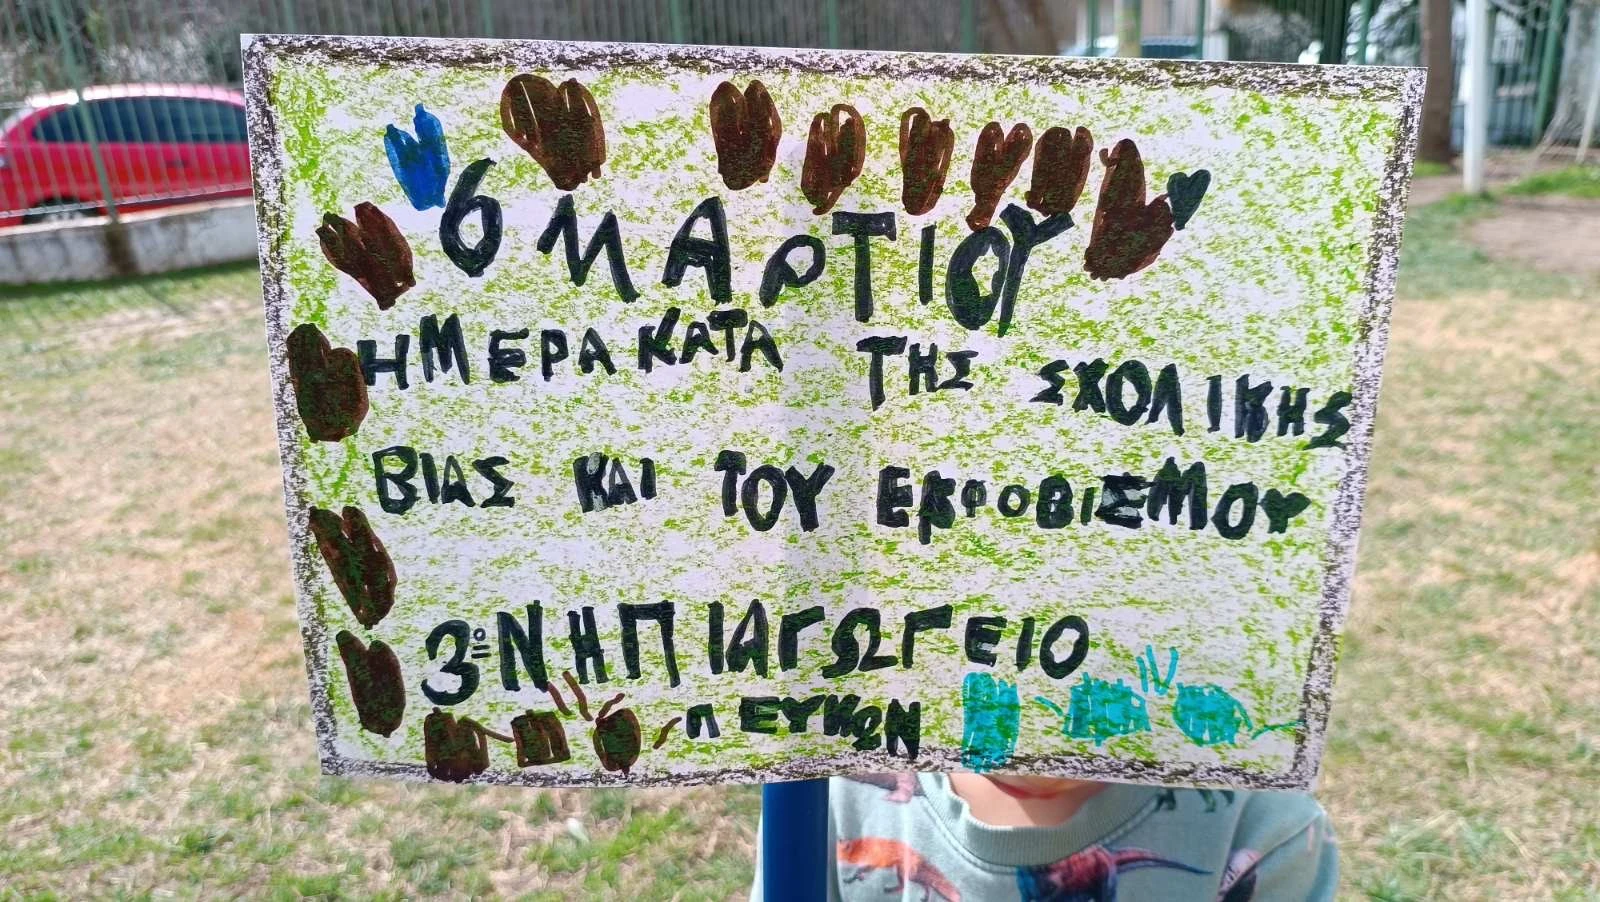 6 ΜΑΡΤΙΟΥ
ΗΜΕΡΑ ΚΑΤΑ ΤΗΣ ΣΧΟΛΙΚΗΣ
ΒΙΑΣ ΚΑΙ ΤΟΥ ΕΚΦΟΒΙΣΜΟΥ
3ο ΝΗΠΙΑΓΩΓΕΙΟ
ΠΕΥΚΩΝ